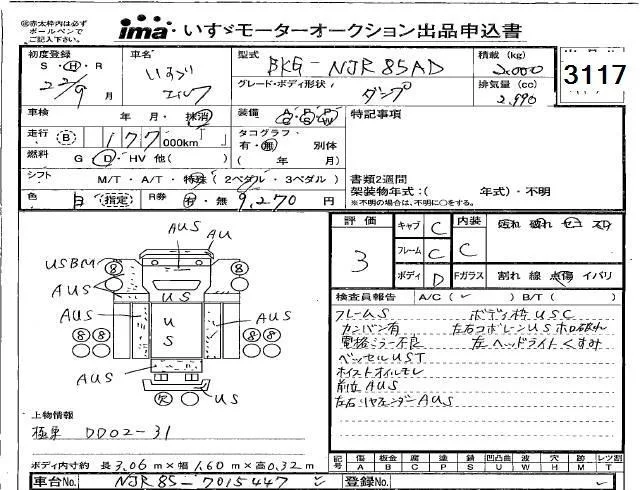 ㊟赤太枠内は必ず
ボールペンで
ご記入下さい。
ima いすゞモーターオークション出品申込書
初度登録 車名 型式 積載 (kg)
S・H・R いすゞ BKG-NJR85AD 3.000 3117
22/9 月 エルフ グレード・ボディ形状 ダンプ 排気量 (cc)
2.990
車検 年・月・抹消 装備 特記事項
走行 B 177,000km タコグラフ
有・無 別体
燃料 G D HV 他( ) ( 年 月)
シフト M/T・A/T・特殊(2ペダル・3ペダル)
書類2週間
架装物年式:( 年式)・不明
※不明の場合は、不明に○をする。
色 白 指定 R券 有・無 9,270 円
評価 3
キャブ C 内装 C 汚れ 破れ セコ スリ
フレーム C
ボディ D Fガラス 割れ 線 点傷 イバリ
検査員報告 A/C( ✓ ) B/T( )
フレームS ボディ枠USC
カンバン有 左右コボレーンUSホロ破れ
電格ミラー不良 左ヘッドライトくすみ
ベッセルUST
ホイストオイルモレ
前立AUS
左右リヤフェンダーAUS
AUS AU
USBM 8 8
AUS US
AUS US AUS
8 8
AUS
欠 US
上物情報
極東 DD02-31
ボディ内寸約 長3.06m×幅1.60m×高0.32m
記号 傷 板金 腐 塗 錆 凹凸曲 欠 穴 跡 レツ割
A B C P S U W H M T
車台No. NJR85-7015447 ✓ 登録No. ✓